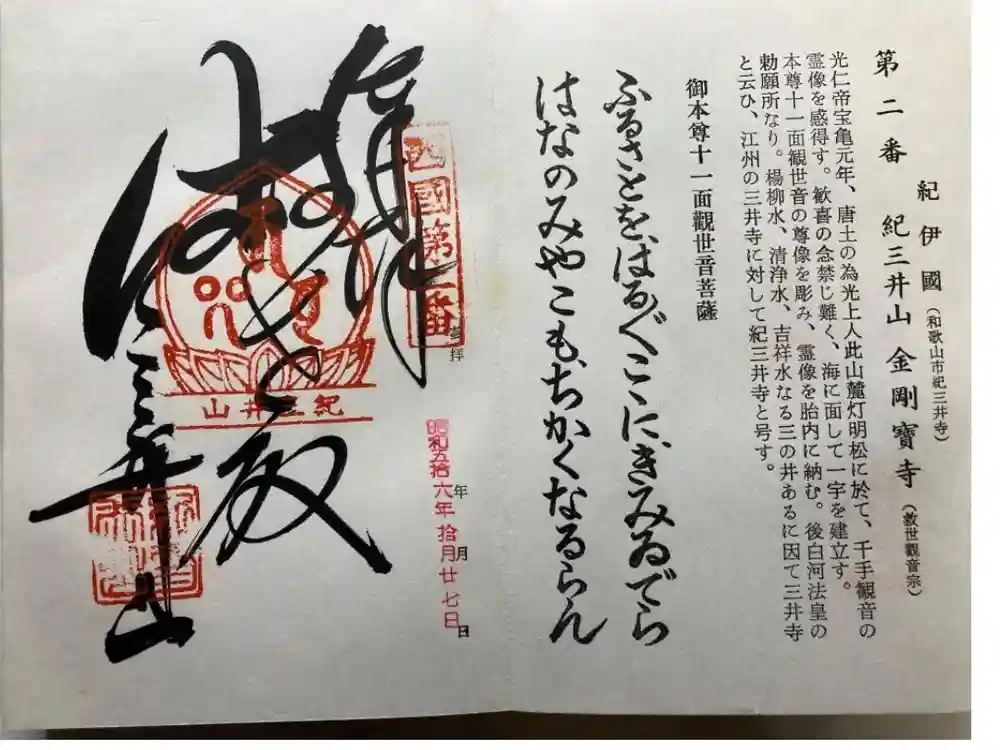 紀伊國(和歌山市紀三井寺)
第二番 紀三井山 金剛寶寺(救世観音宗)
光仁帝宝亀元年、唐土の為光上人此山麓灯明松に於て、千手観音の
霊像を感得す。歓喜の念禁じ難く、海に面して一宇を建立す。
本尊十一面観世音の尊像を彫み、霊像を胎内に納む。後白河法皇の
勅願所なり。楊柳水、清浄水、吉祥水なる三の井あるに因て三井寺
と云ひ、江州の三井寺に対して紀三井寺と号す。
御本尊十一面觀世音菩薩
ふるさとをはるばるこゝにきみゐでら
はなのみやこもちかくなるらん
西國第二番
参拝
昭和五拾六年拾月廿七日
年月日
奉拝
紀三井山
山井三紀